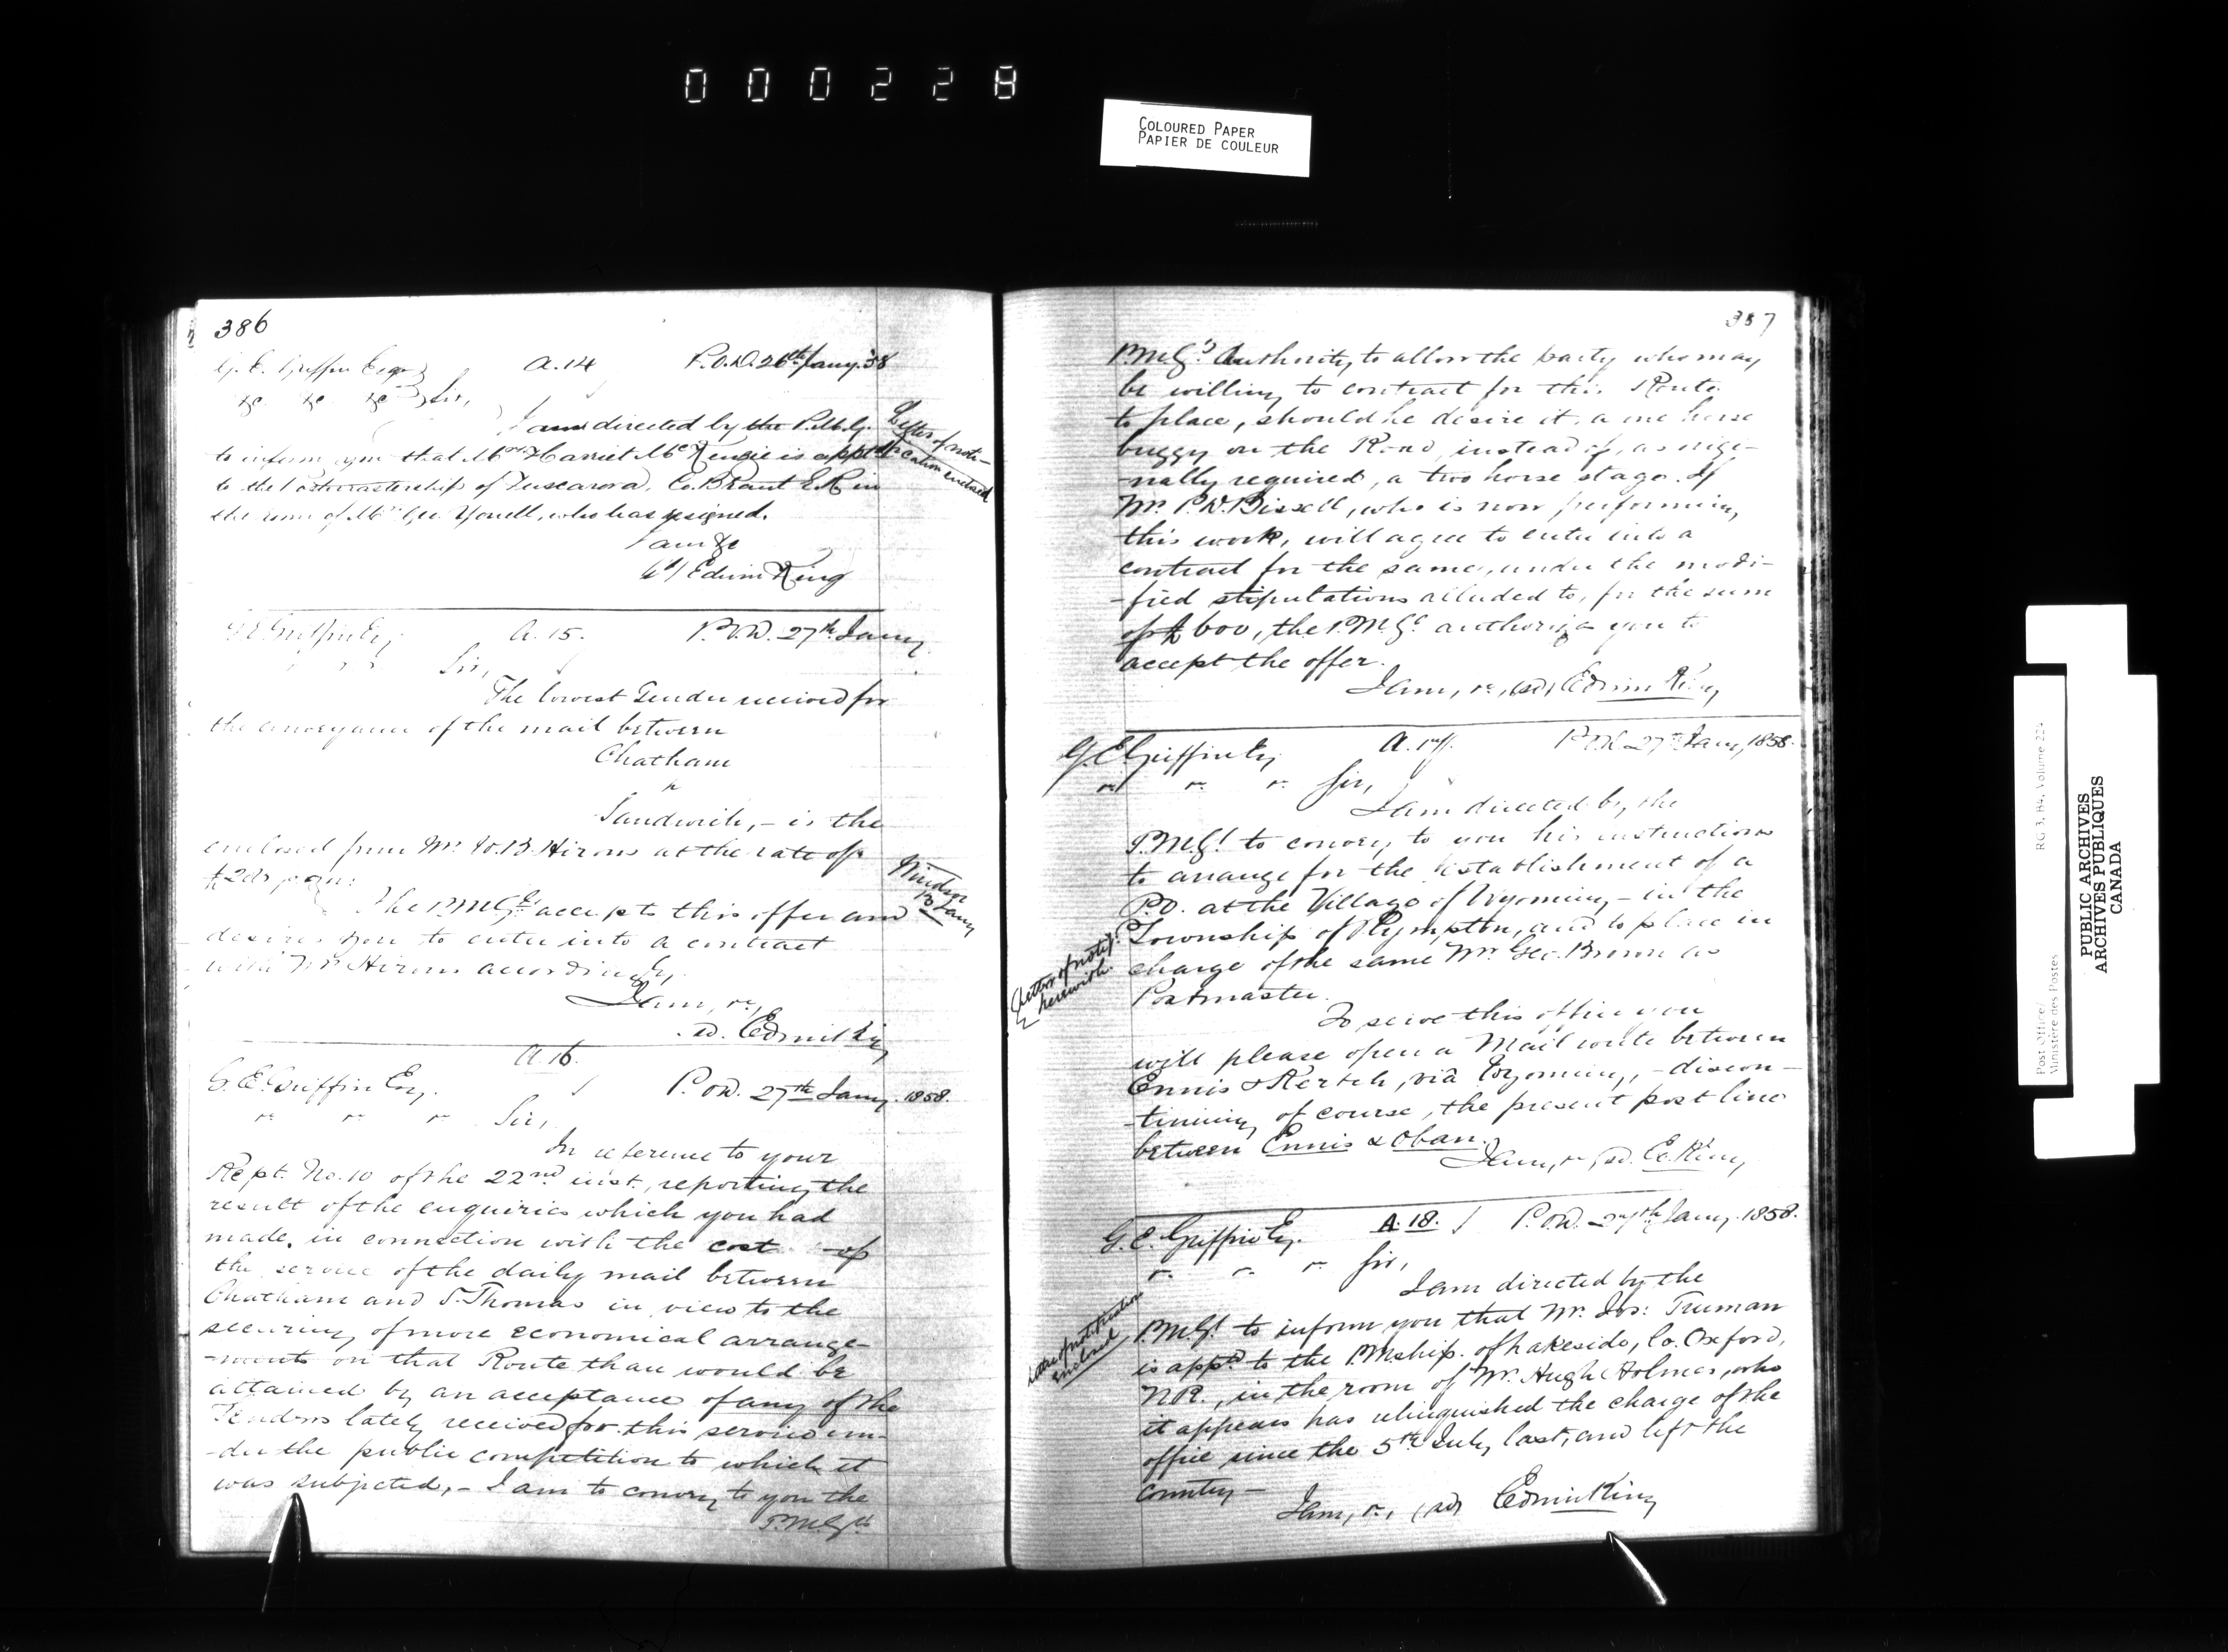 000228
COLOURED PAPER
PAPIER DE COULEUR
386
G. E. Griffin Esq A.14 P.O.D. 26th Jany. 58
&c &c &c Sir,
I am directed by the P.M.G.
to inform you that Mrs Harriet McKenzie is appt'd
to the Postmastership of Tuscarora, Co. Brant E.R in
the room of Mr Geo. Youell, who has resigned.
I am &c
Edwin King
Letter of notification enclosed
G E Griffin Esq A. 15. P.O.D. 27th Jany
Sir,
The lowest Tender received for
the conveyance of the mail between
Chatham
&
Sandwich, – is the
enclosed from Mr. W. B. Hirons at the rate of
The P.M.Gl. accepts this offer and
desires you to enter into a contract
with Mr Hirons accordingly.
I am, &c,
sd. Edwin King
Windsor
Jany
A 16.
G. E. Griffin Esq. P.O.D. 27th Jany. 1858.
" " " Sir,
In reference to your
Rept. No. 10 of the 22nd inst., reporting the
result of the enquiries which you had
made, in connection with the cost of
the service of the daily mail between
Chatham and St Thomas in view to the
securing of more economical arrange-
-ments on that Route than would be
attained by an acceptance of any of the
Tenders lately received for this service un-
-der the public competition to which it
was subjected, – I am to convey to you the
P.M.Gl's
387
P.M.G's Authority to allow the party who may
be willing to contract for this Route
to place, should he desire it, a one horse
buggy on the Road, instead of, as origi-
-nally required, a two horse stage. If
Mr. P. D. Bissell, who is now performing
this work, will agree to enter into a
contract for the same, under the modi-
-fied stipulations alluded to, for the sum
of £ 600, the P.M.Gl authorizes you to
accept the offer.
I am, &c, (sd) Edwin King
G. E. Griffin Esq A. 17. P.O.D. 27th Jany, 1858.
" " " Sir,
I am directed by the
P.M.Gl to convey to you his instructions
to arrange for the establishment of a
P.O. at the Village of Wyoming – in the
Township of Plympton, and to place in
charge of the same Mr. Geo. Brown as
Postmaster.
Letter of notifn
herewith.
To serve this office you
will please open a Mail route between
Ennis & Kertch, via Wyoming, – discon-
-tinuing of course, the present post line
between Ennis & Oban.
I am, &c, sd. E. King
G. E. Griffin Esq. A. 18. P.O.D. 27th Jany. 1858.
" " " Sir,
I am directed by the
P.M.Gl to inform you that Mr. Jos: Truman
is appd to the PMship. of Lakeside, Co. Oxford,
N.R., in the room of Mr. Hugh Holmes, who
it appears has relinquished the charge of the
office since the 5th July last, and left the
country –
I am, &c, (sd) Edwin King
Letter of notification
enclosed
Post Office/
Ministère des Postes
RG 3, B4, Volume 224
PUBLIC ARCHIVES
ARCHIVES PUBLIQUES
CANADA